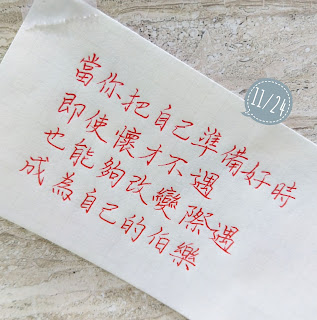 11/24
當你把自己準備好時
即使懷才不遇
也能夠改變際遇
成為自己的伯樂